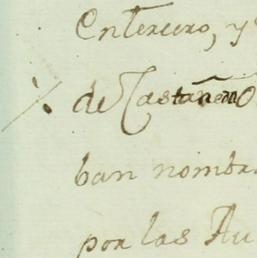 Entercero, y
de Castañedo
ban nombra
por las Au